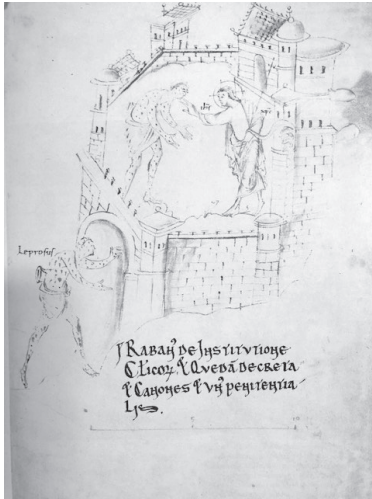 Leprosus
Raban' De Institutione
Cl'icoꝝ. ⁊ Quedā Decreta
⁊ Canones ⁊ un' penitentia
Lis.